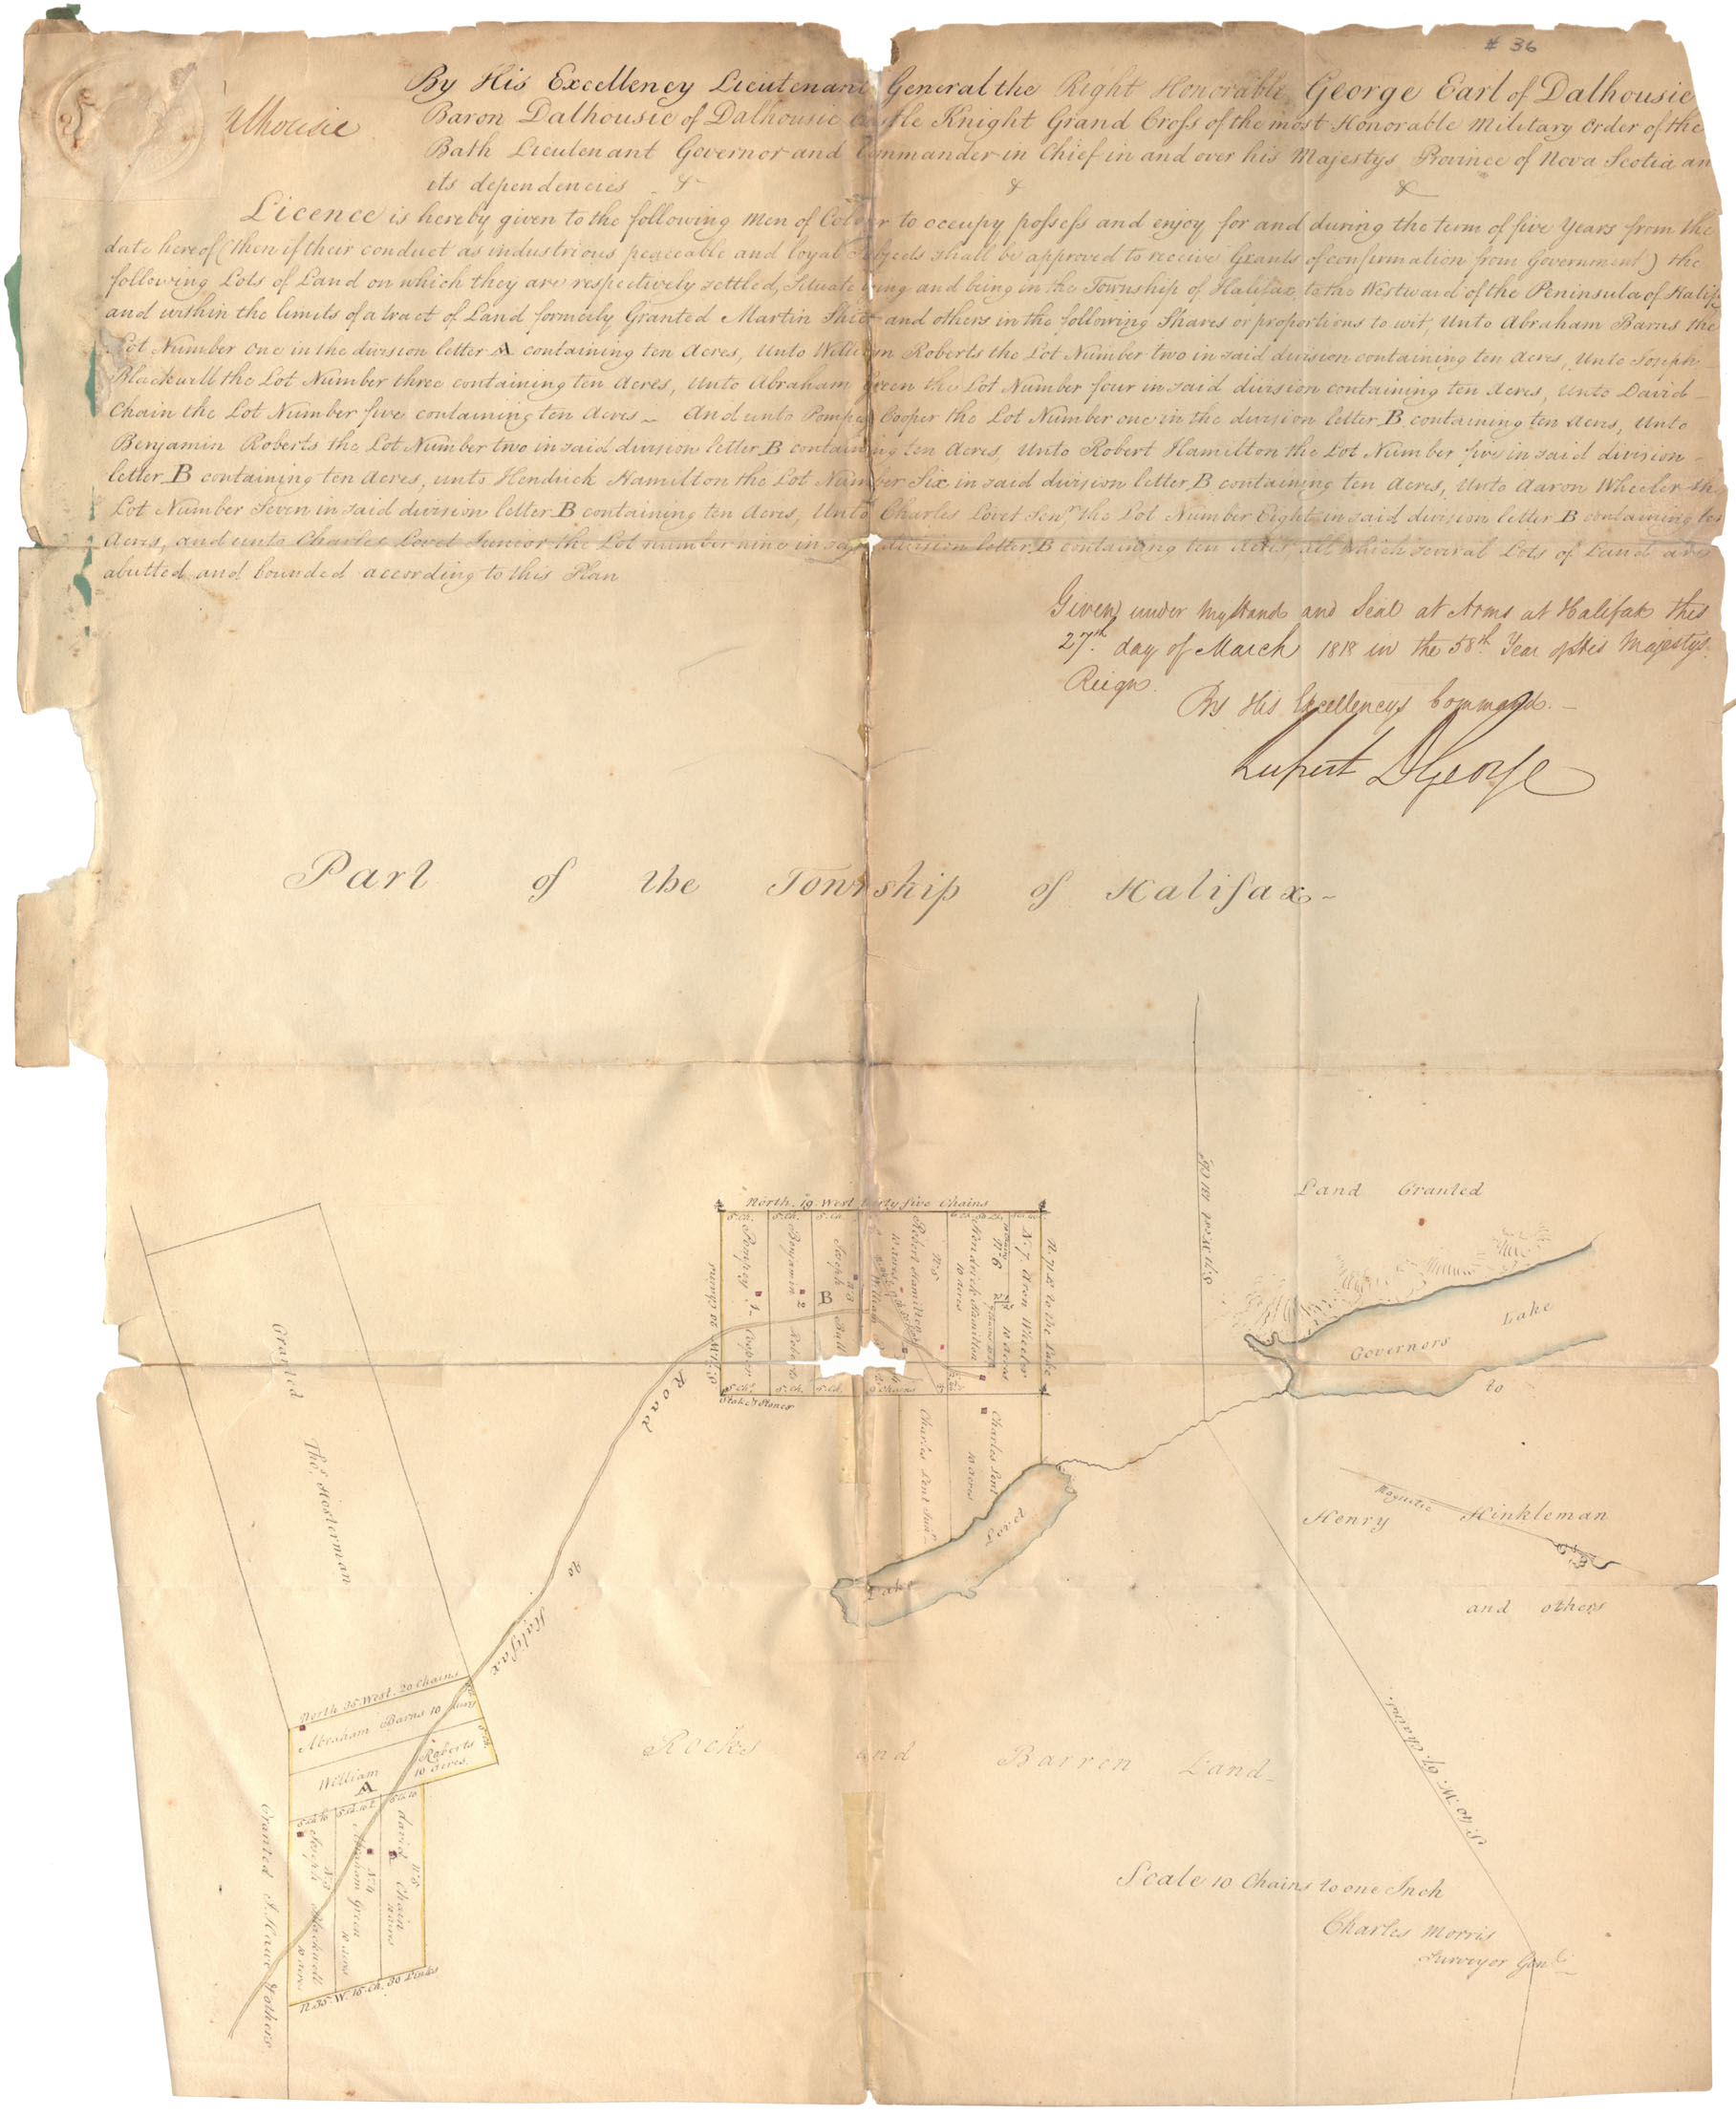 # 36
Dalhousie
By His Excellency Lieutenant General the Right Honorable George Earl of Dalhousie
Baron Dalhousie of Dalhousie Castle Knight Grand Cross of the most Honorable Military Order of the
Bath Lieutenant Governor and Commander in Chief in and over his Majestys Province of Nova Scotia an
its dependencies & & &
Licence is hereby given to the following Men of Colour to occupy possess and enjoy for and during the term of five Years from the
date hereof (then if their conduct as industrious peaceable and loyal Subjects shall be approved to receive Grants of confirmation from Government) the
following Lots of Land on which they are respectively settled, Situate lying and being in the Township of Halifax, to the Westward of the Peninsula of Halifx
and within the limits of a tract of Land formerly Granted Martin and others in the following Shares or proportions to wit, Unto Abraham Barns the
Lot Number One in the division letter A containing ten Acres, Unto William Roberts the Lot Number two in said division containing ten Acres, Unto Joseph
Blackwell the Lot Number three containing ten Acres, Unto Abraham Green the Lot Number four in said division containing ten Acres, Unto David
Chain the Lot Number five containing ten Acres And unto Pompey Cooper the Lot Number one in the division letter B containing ten Acres, Unto
Benjamin Roberts the Lot Number two in said division letter B containing ten Acres, Unto Robert Hamilton the Lot Number five in said division
letter B containing ten Acres, unto Hendrick Hamilton the Lot Number Six in said division letter B containing ten Acres, Unto Aaron Wheeler the
Lot Number Seven in said division letter B containing ten Acres, Unto Charles Lovet Senr. the Lot Number Eight in said division letter B containing ten
Acres, and unto Charles Lovet Junior the Lot number nine in said division letter B containing ten Acres all which several Lots of Land are
abutted and bounded according to this Plan
Given under my Hand and Seal at Arms at Halifax this
27th. day of March 1818 in the 58th. Year of His Majestys
Reign.
By His Excellencys Command.
Rupert D George
Part of the Township of Halifax
S. 19 West
Land Granted
North. 19 West Forty five Chains
5 Ch. 5 Ch. 5 Ch.
Pompey 1 Cooper
Benjamin 2 Roberts
Joseph No 3 Bull
B
William
No 5 Robert Hamilton 10 acres
No 6 Hendrick Hamilton 10 acres
No. 7 Aron Wheeler 10 acres
N. 71 E. to the Lake
22 Chains
5 Ch. 5 Ch. 5 Ch. 5 Chains
Stake & Stones
Governors Lake
to
Granted
Thos. Hosterman
Road
to
Halifax
Charles Lovt Junr.
Charles Lovt 10 acres
Lake Lovet
Magnetic
Henry Hinkleman
and others
North 35 West. 20 Chains
Abraham Barns 10 Acres
William Roberts
10 acres.
A
Joseph No 3 Blackwell 10 acres
Abraham Green No 4 10 acres
David Chain No 5 10 acres
N. 35. W. 15. Ch. 30 Links
Granted J. Hawe & others
Rocks and Barren Land
S. 40 W. 67. Chains.
Scale 10 Chains to one Inch
Charles Morris
Surveyor Genl.